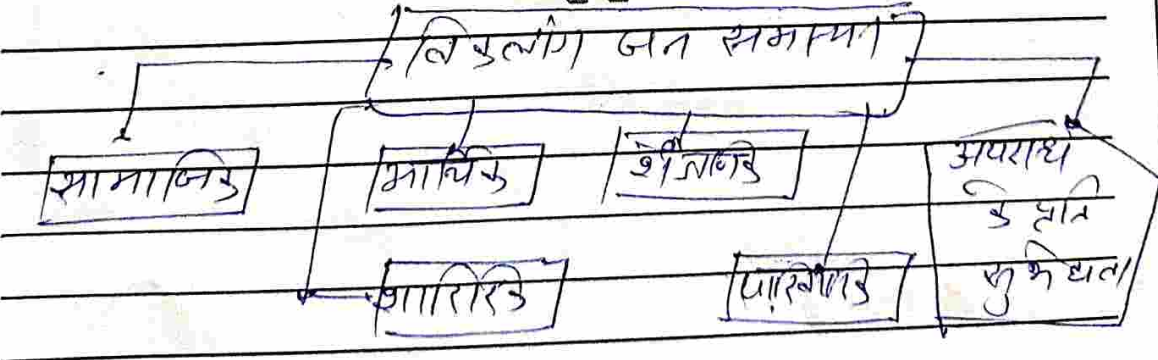 विकलांग जन समस्या
सामाजिक
आर्थिक
शैक्षणिक
अपराध
के प्रति
सुभेद्यता
शारिरिक
पारिवारिक